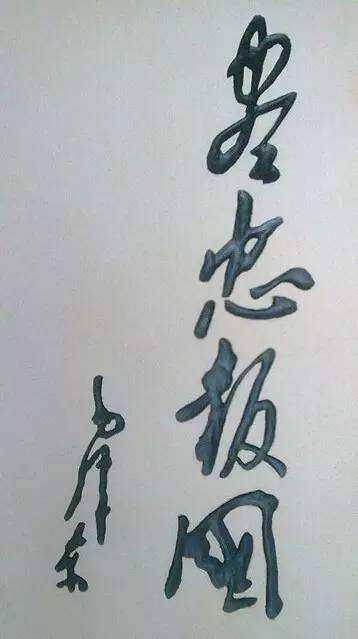 尽忠报国
毛泽东